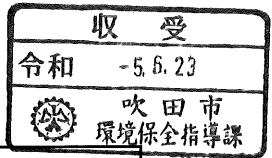 収受
令和 -5.6.23
吹田市
環境保全指導課